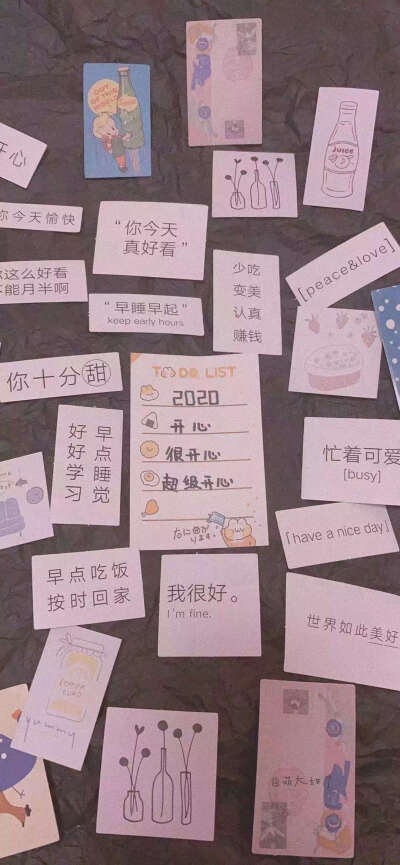 OUT OF THIS WORLD
JUICE
开心
你今天愉快
“你今天
真好看”
这么好看
能月半啊
“早睡早起”
keep early hours
少吃
变美
认真
赚钱
[peace&love]
你十分甜
TO DO LIST
2020
开心
很开心
超级开心
早点睡觉
好好学习
忙着可爱
[busy]
「have a nice day」
早点吃饭
按时回家
我很好。
I'm fine.
世界如此美好
yummy